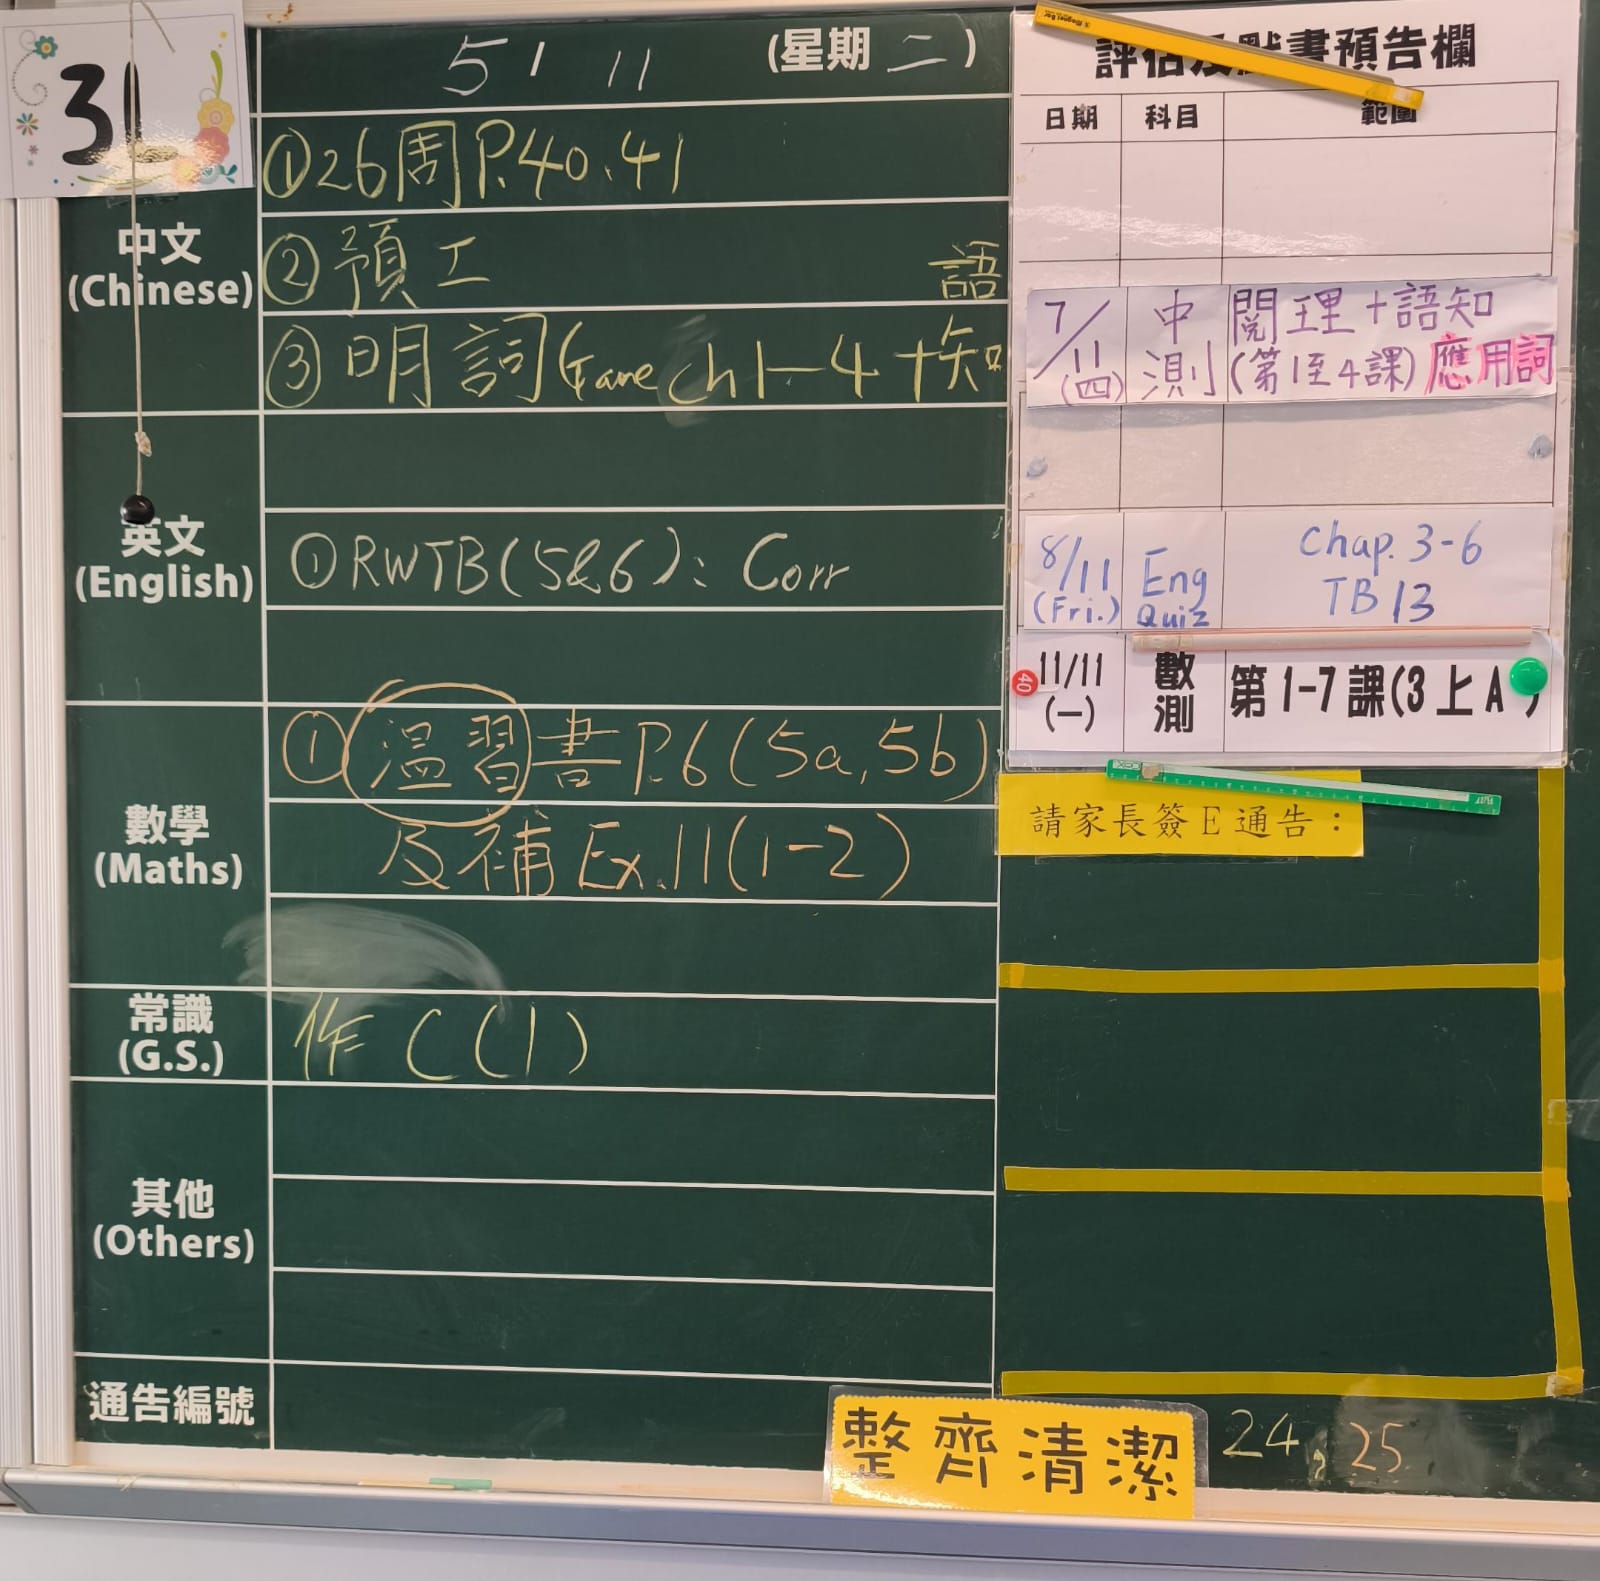 3L
5 / 11 (星期 二)
中文
(Chinese)
①26周P.40、41
②預工 語
③明詞(Game ch1-4+知
英文
(English)
①RWTB(5&6): Corr
數學
(Maths)
①温習書P.6(5a,5b)
及補Ex.11(1-2)
常識
(G.S.)
作C(1)
其他
(Others)
通告編號
評估及默書預告欄
日期 科目 範圍
7/11(四) 中測 閱理+語知(第1至4課)應用詞
8/11(Fri.) Eng Quiz Chap. 3-6 TB 13
11/11(一) 數測 第1-7課(3上A)
40
請家長簽E通告:
整齊清潔
24, 25